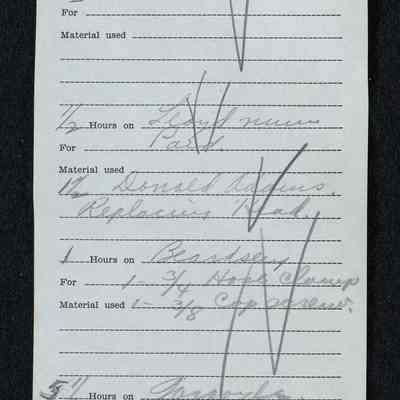 For
Material used
1/2 Hours on Lloyd
For Paid.
Material used
1 1/2 Donald Adams.
Replacing
1 Hours on Beardsley
For 1 - 3/4 Hose Clamp
Material used 1 - 3/8 Cap screw.
Hours on